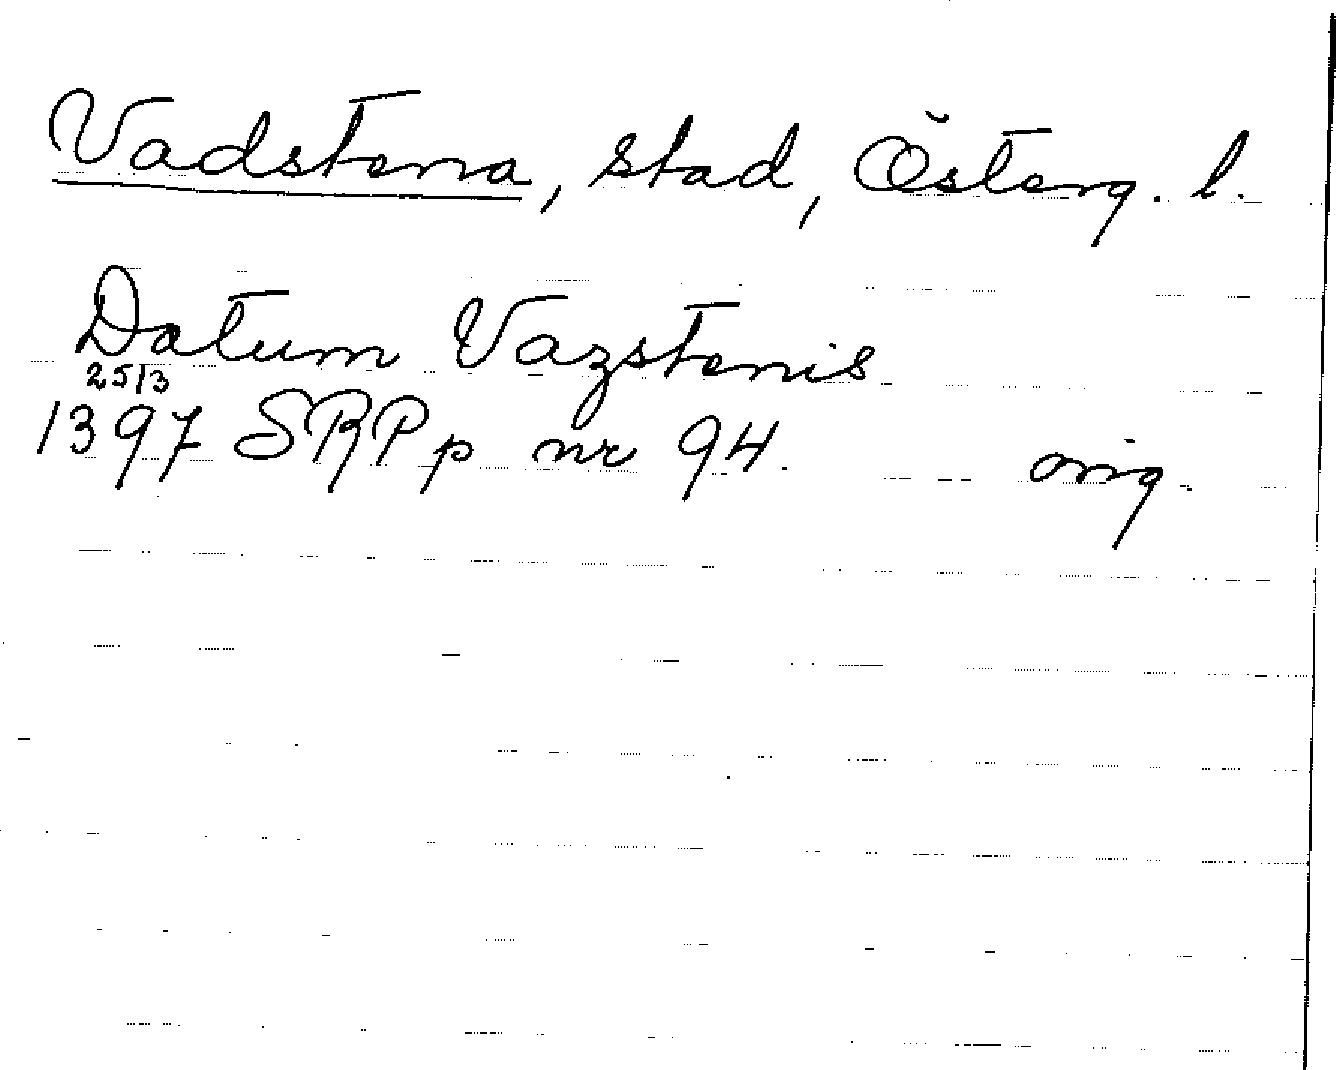 Vadstena, stad, Österg. l.
Datum Vazstenis
25/3
1397 SRPp nr 94. orig.